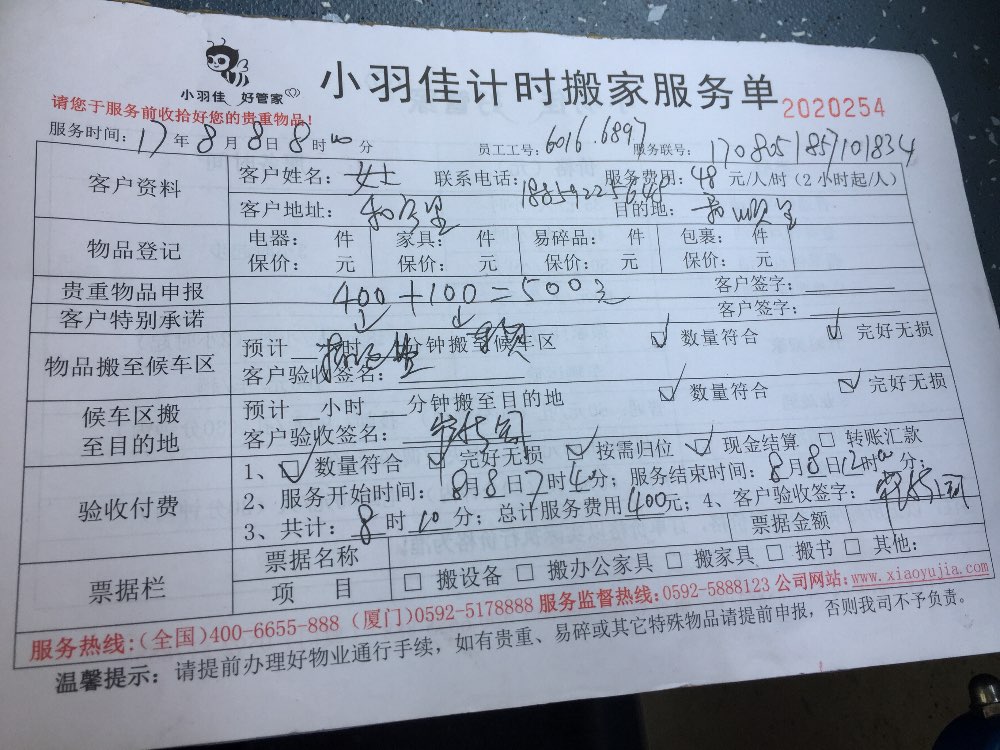 小羽佳 好管家
小羽佳计时搬家服务单 2020254
请您于服务前收拾好您的贵重物品!
服务时间: 17 年 8 月 8 日 8 时 00 分 员工工号: 6016.6897 服务联号: 1708051857101834
客户资料 客户姓名: 女士 联系电话: 服务费用: 48 元/人/时 (2小时起/人)
客户地址: 目的地:
物品登记 电器: 件 家具: 件 易碎品: 件 包裹: 件
保价: 元 保价: 元 保价: 元 保价: 元
贵重物品申报 客户签字:
400+100=500元
客户特别承诺 客户签字:
物品搬至候车区 预计 小时 分钟搬至候车区 ☑ 数量符合 ☑ 完好无损
客户验收签名:
候车区搬至目的地 预计 小时 分钟搬至目的地 ☑ 数量符合 ☑ 完好无损
客户验收签名:
验收付费 1、☑ 数量符合 ☑ 完好无损 ☑ 按需归位 ☑ 现金结算 □ 转账汇款
2、服务开始时间: 8月8日7时40分; 服务结束时间: 8月8日12时00分;
3、共计: 8 时 20 分; 总计服务费用 400元; 4、客户验收签字:
票据栏 票据名称 票据金额
项 目 □ 搬设备 □ 搬办公家具 □ 搬家具 □ 搬书 □ 其他:
服务热线:(全国)400-6655-888 (厦门)0592-5178888 服务监督热线:0592-5888123 公司网站:www.xiaoyujia.com
温馨提示: 请提前办理好物业通行手续,如有贵重、易碎或其它特殊物品请提前申报,否则我司不予负责。